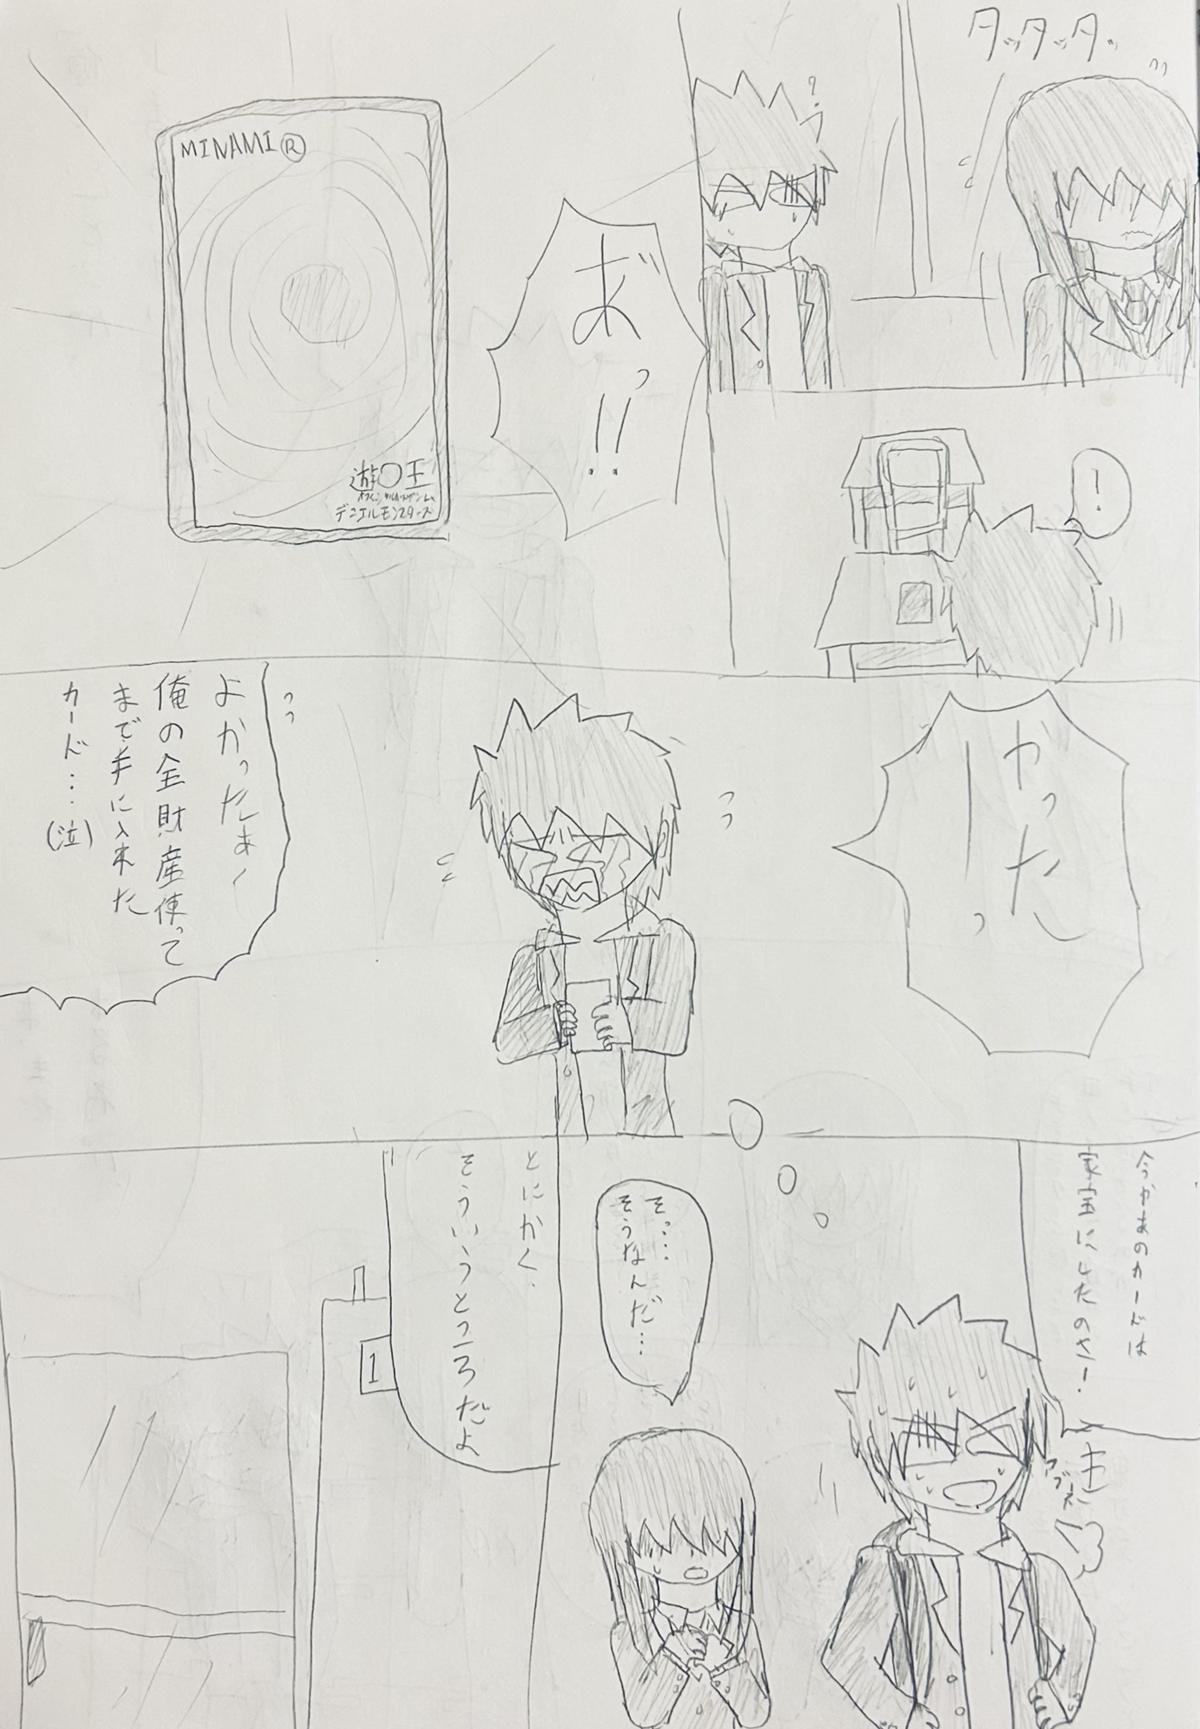 タッタッタッ
?
!
あ゛っ!!
MINAMI Ⓡ
遊〇王
デュエルモンスターズ
やった
ーっ
よかったぁ〜
俺の全財産使って
まで手に入れた
カード…
(泣)
今やあのカードは
家宝にしたのさ!
アブネー
そっ…
そうなんだ…
とにかく、
そういうところだよ
1